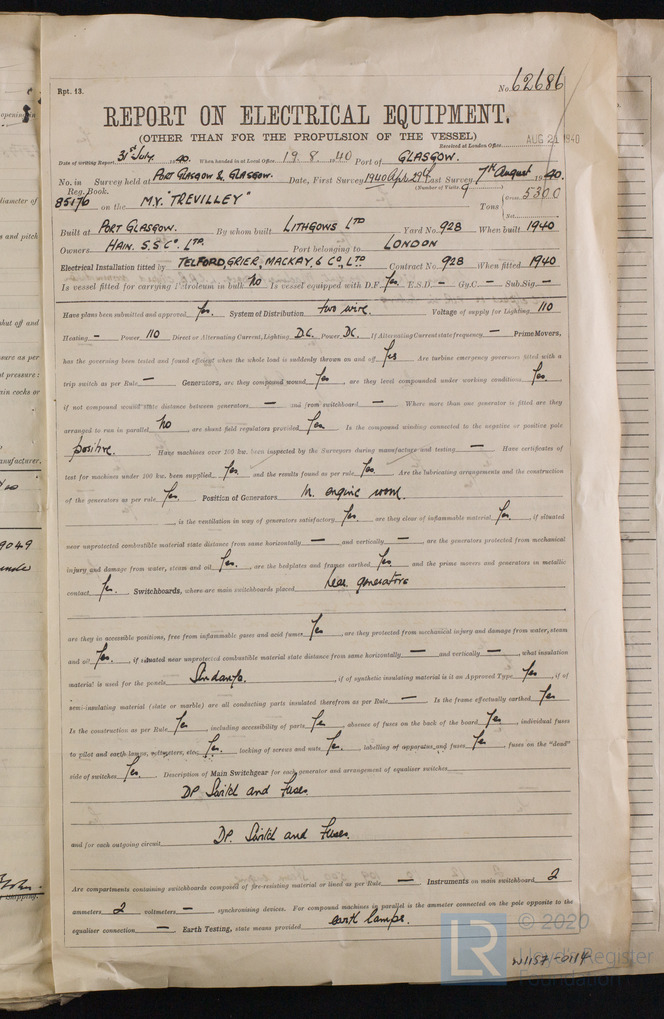 Rpt. 13.
No. 62686
REPORT ON ELECTRICAL EQUIPMENT.
(OTHER THAN FOR THE PROPULSION OF THE VESSEL)
Received at London Office AUG 21 1940
Date of writing Report 31st July, 1940. When handed in at Local Office 19.8.1940 Port of GLASGOW.
No. in Survey held at PORT GLASGOW & GLASGOW. Date, First Survey 1940 Apr. 29th Last Survey 7th August 1940.
Reg. Book. (Number of Visits 9)
85176 on the M.Y. "TREVILLEY" Tons Gross 5300
Net
Built at PORT GLASGOW. By whom built LITHGOWS LTD Yard No. 928 When built 1940
Owners HAIN. S.S. Co. LTD. Port belonging to LONDON
Electrical Installation fitted by TELFORD, GRIER, MACKAY, & CO., LTD Contract No. 928 When fitted 1940
Is vessel fitted for carrying Petroleum in bulk No Is vessel equipped with D.F. Yes E.S.D. — Gy.C. — Sub.Sig. —
Have plans been submitted and approved Yes. System of Distribution two wire. Voltage of supply for Lighting 110
Heating — Power 110 Direct or Alternating Current, Lighting D.C. Power D.C. If Alternating Current state frequency — Prime Movers,
has the governing been tested and found efficient when the whole load is suddenly thrown on and off Yes Are turbine emergency governors fitted with a
trip switch as per Rule — Generators, are they compound wound Yes, are they level compounded under working conditions Yes.
if not compound wound state distance between generators — and from switchboard — Where more than one generator is fitted are they
arranged to run in parallel No, are shunt field regulators provided Yes. Is the compound winding connected to the negative or positive pole
positive. Have machines over 100 kw. been inspected by the Surveyors during manufacture and testing — Have certificates of
test for machines under 100 kw. been supplied Yes and the results found as per rule Yes. Are the lubricating arrangements and the construction
of the generators as per rule Yes. Position of Generators In engine room.
, is the ventilation in way of generators satisfactory Yes. are they clear of inflammable material Yes. if situated
near unprotected combustible material state distance from same horizontally — and vertically —, are the generators protected from mechanical
injury and damage from water, steam and oil Yes. are the bedplates and frames earthed Yes and the prime movers and generators in metallic
contact Yes. Switchboards, where are main switchboards placed near generators
are they in accessible positions, free from inflammable gases and acid fumes Yes, are they protected from mechanical injury and damage from water, steam
and oil Yes., if situated near unprotected combustible material state distance from same horizontally — and vertically —, what insulation
material is used for the panels Sindanyo., if of synthetic insulating material is it an Approved Type Yes, if of
semi-insulating material (slate or marble) are all conducting parts insulated therefrom as per Rule — Is the frame effectually earthed Yes
Is the construction as per Rule Yes, including accessibility of parts Yes, absence of fuses on the back of the board Yes, individual fuses
to pilot and earth lamps, voltmeters, etc. Yes. locking of screws and nuts Yes. labelling of apparatus and fuses Yes, fuses on the "dead"
side of switches Yes. Description of Main Switchgear for each generator and arrangement of equaliser switches
DP Switch and Fuses
and for each outgoing circuit DP. Switch and Fuses.
Are compartments containing switchboards composed of fire-resisting material or lined as per Rule — Instruments on main switchboard 2
ammeters 2 voltmeters — synchronising devices. For compound machines in parallel is the ammeter connected on the pole opposite to the
equaliser connection — Earth Testing, state means provided earth lamps.
© 2020
LR Lloyd's Register
Foundation
W1157-0114